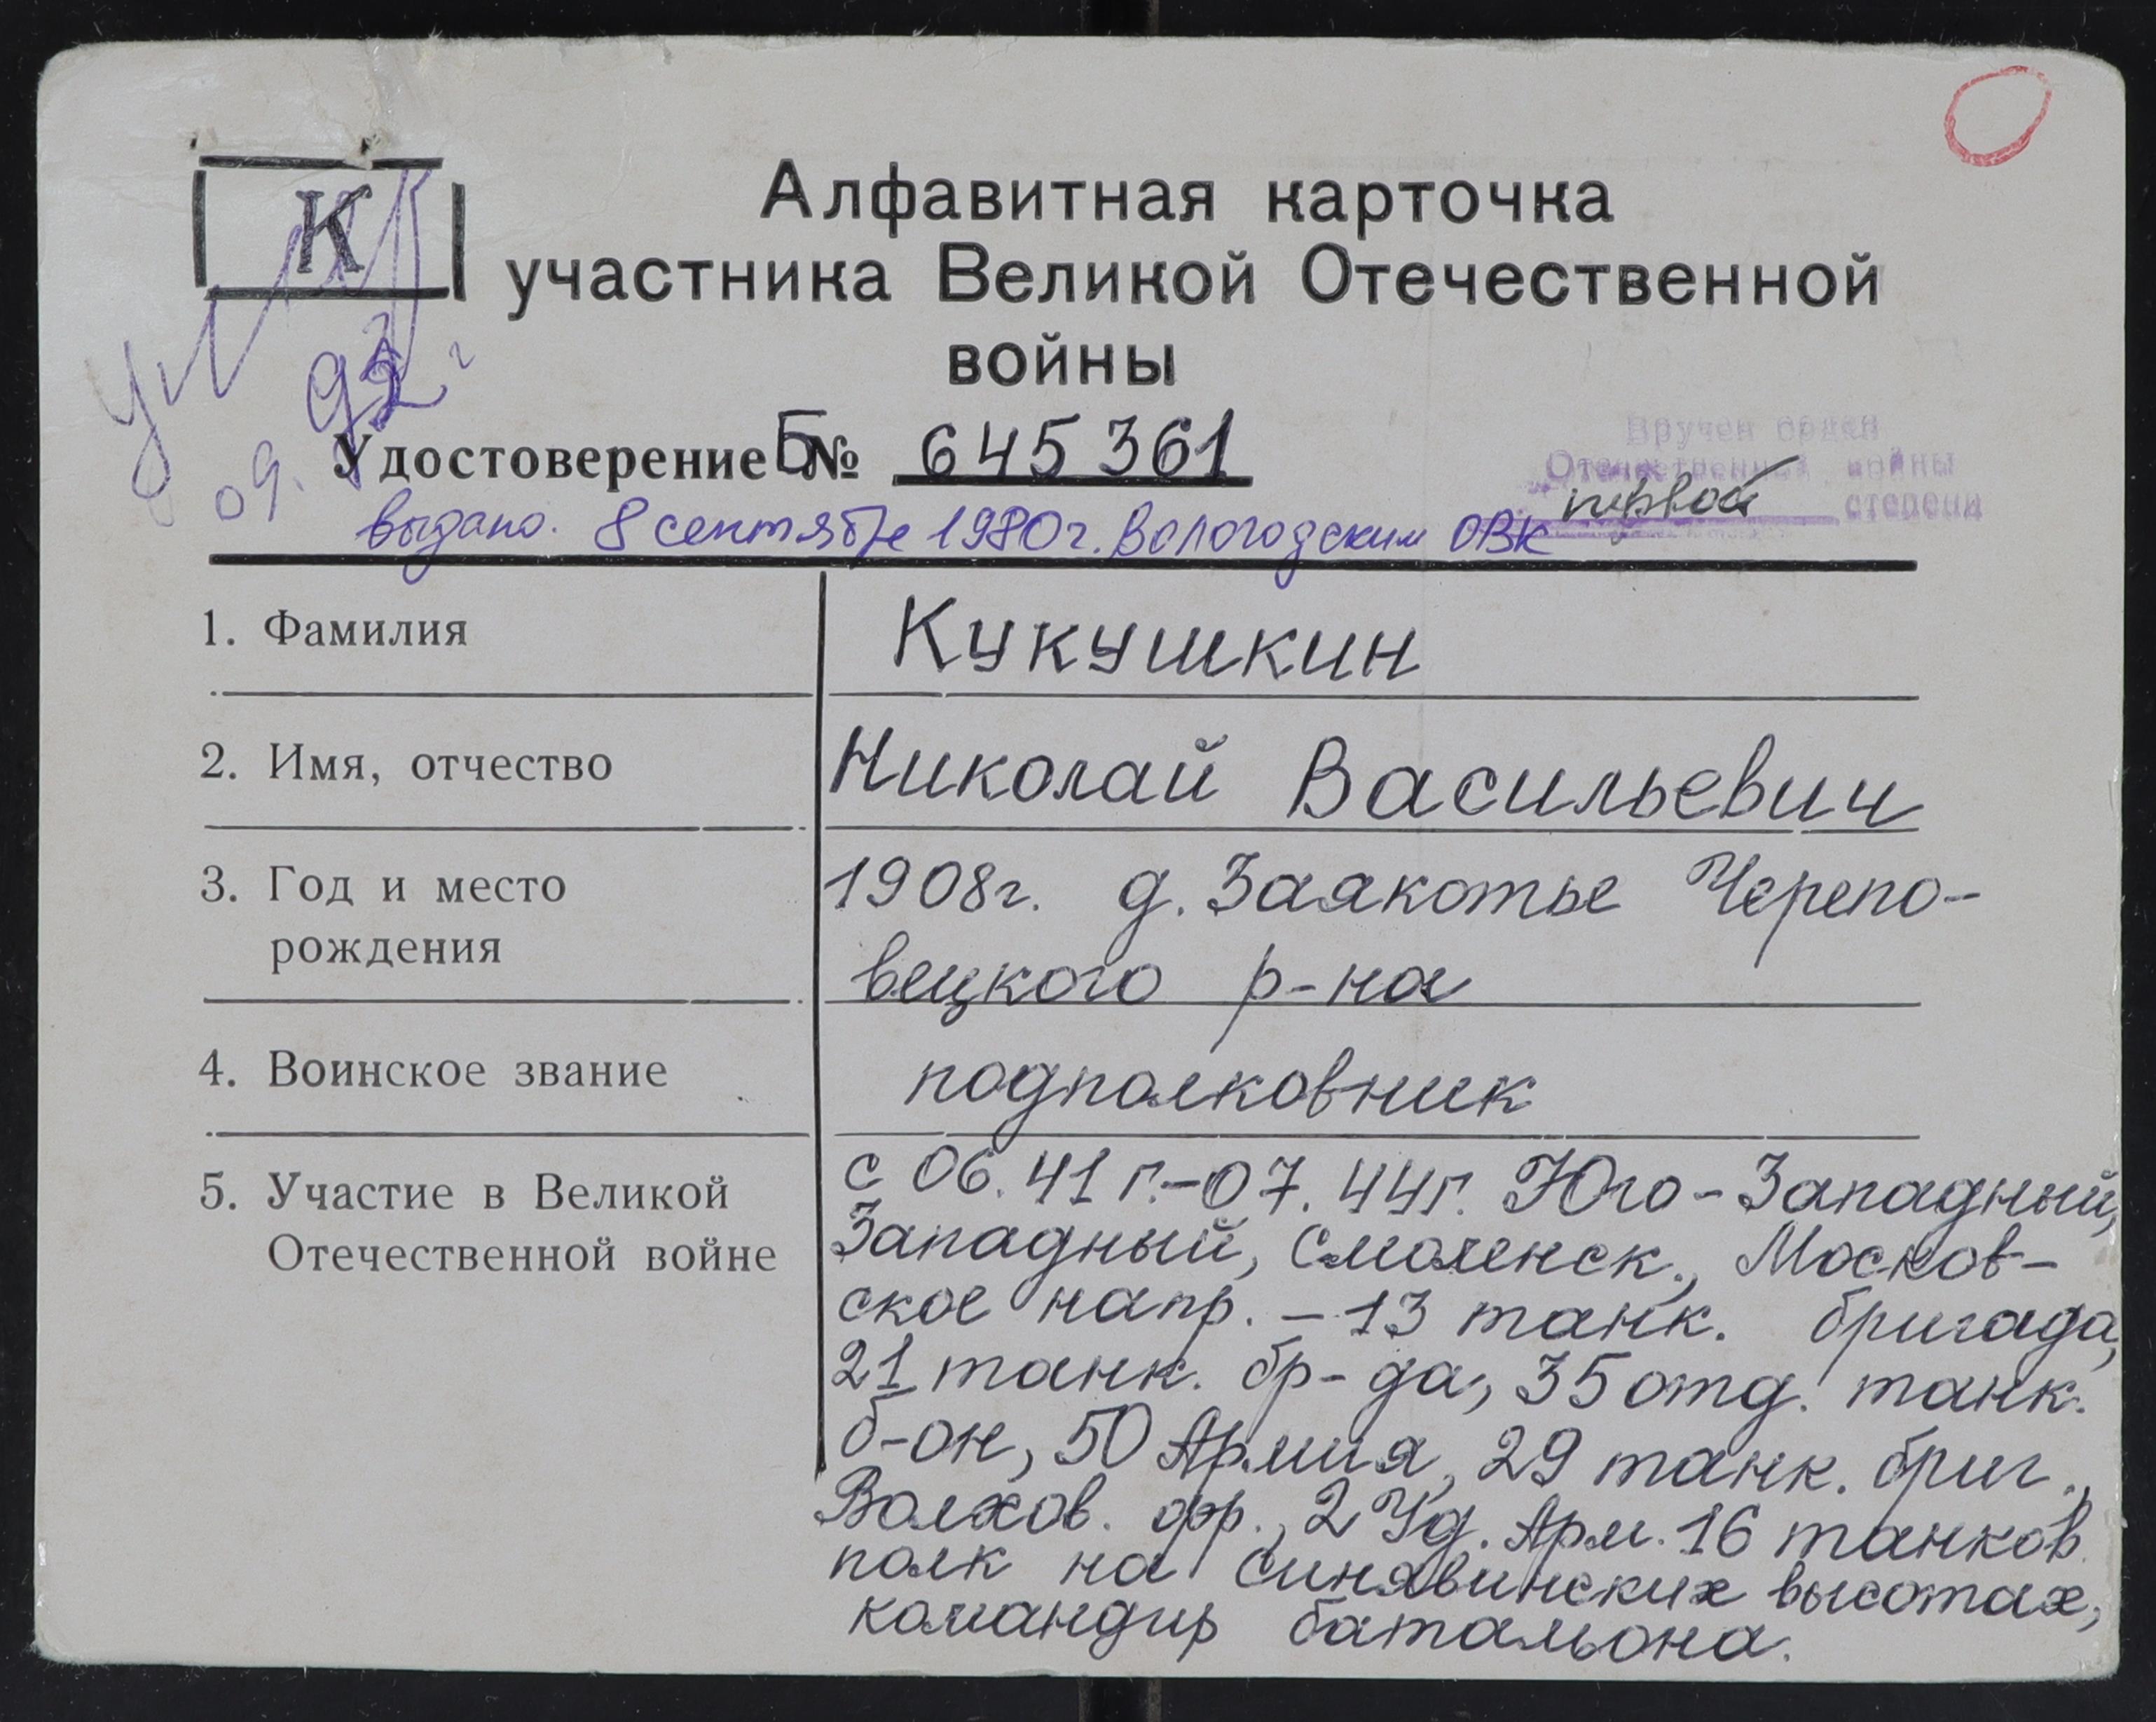 К
Алфавитная карточка
участника Великой Отечественной
войны
Удостоверение Б№ 645361
выдано. 8 сентября 1980г. Вологодским ОВК
Вручен орден
Отечественной войны
первой степени
1. Фамилия Кукушкин
2. Имя, отчество Николай Васильевич
3. Год и место 1908г. д. Заякотье Черепо-
рождения вецкого р-на
4. Воинское звание подполковник
5. Участие в Великой с 06.41 г.-07.44г. Юго-Западный,
Отечественной войне Западный, Смоленск., Москов-
ское напр. - 13 танк. бригада,
21 танк. бр-да, 35 отд. танк.
б-он, 50 Армия, 29 танк. бриг.,
Волхов. фр., 2 Уд. Арм. 16 танков.
полк на Синявинских высотах,
командир батальона.